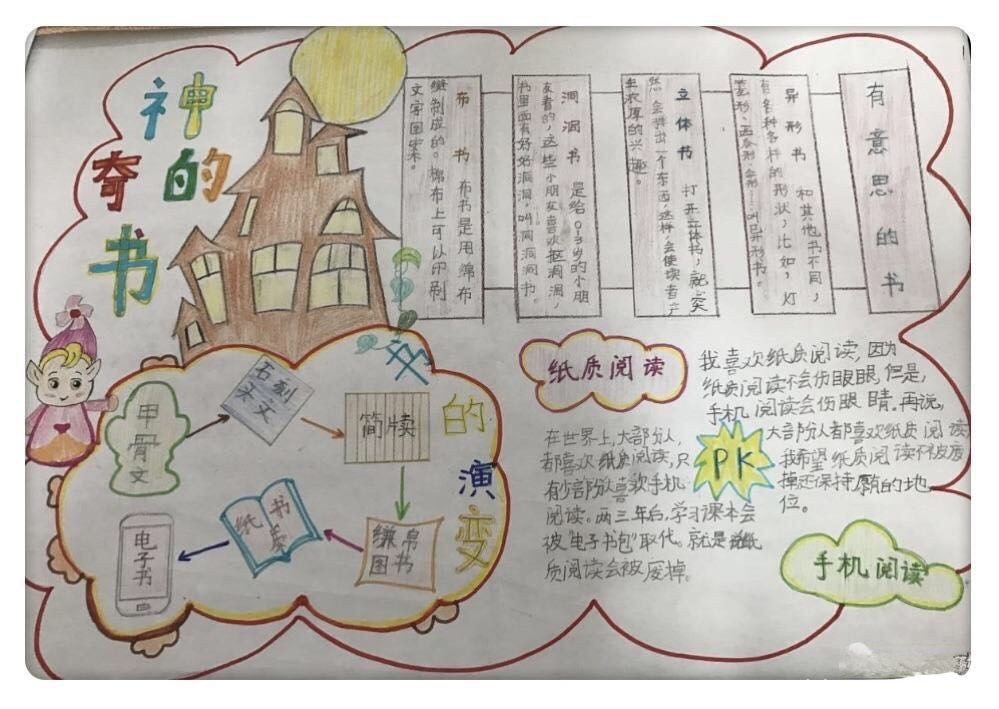 神奇的书
有意思的书
异形书 和其他书不同,
有各种各样的形状,比如,灯
形、西瓜形、形……叫异形书。
立体书 打开立体书,就突
然会弹出一个东西,这样,会使读者产
生衣厚的兴趣。
洞洞书 是给0-3岁的小朋
友看的,这些小朋友喜欢抠洞洞,
书里面有好好洞洞。叫洞洞洞书。
布书 布书是用绵布
缝制成的。棉布上可以印刷
文字图案。
书的演变
甲骨文
石刻
头文
简牍
缣帛
图书
纸书
电子书
纸质阅读
在世界上,大部分人,
都喜欢纸质阅读,只
有少部分人喜欢手机
阅读。两三年后,学习课本会
被"电子书包"取代。就是说纸
质阅读会被废掉。
PK
我喜欢纸质阅读,因为
纸质阅读不会伤眼眼,但是,
手机阅读会伤眼睛。再说,
大部分人都喜欢纸质阅读,
我希望纸质阅读不被废
掉还保持原有的地
位。
手机阅读